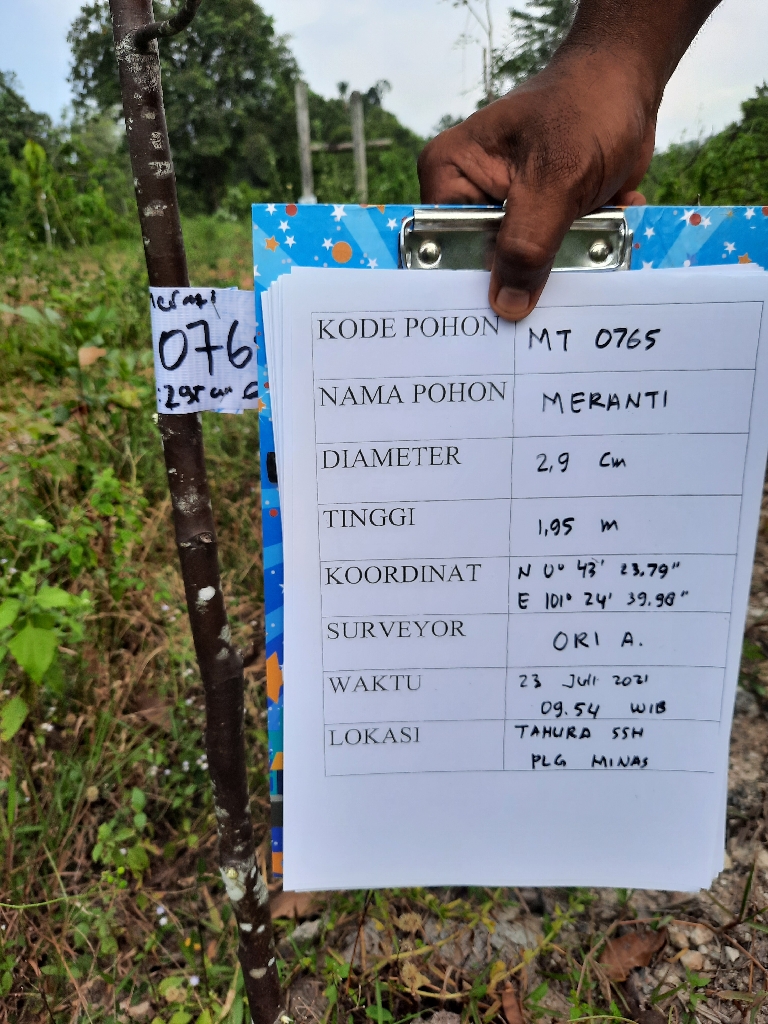 Meranti
076
KODE POHON MT 0765
NAMA POHON MERANTI
DIAMETER 2,9 Cm
TINGGI 1,95 m
KOORDINAT N 0° 43' 23.79"
E 101° 24' 39.98"
SURVEYOR ORI A.
WAKTU 23 Juli 2021
09.54 WIB
LOKASI TAHURA SSH
PLG MINAS